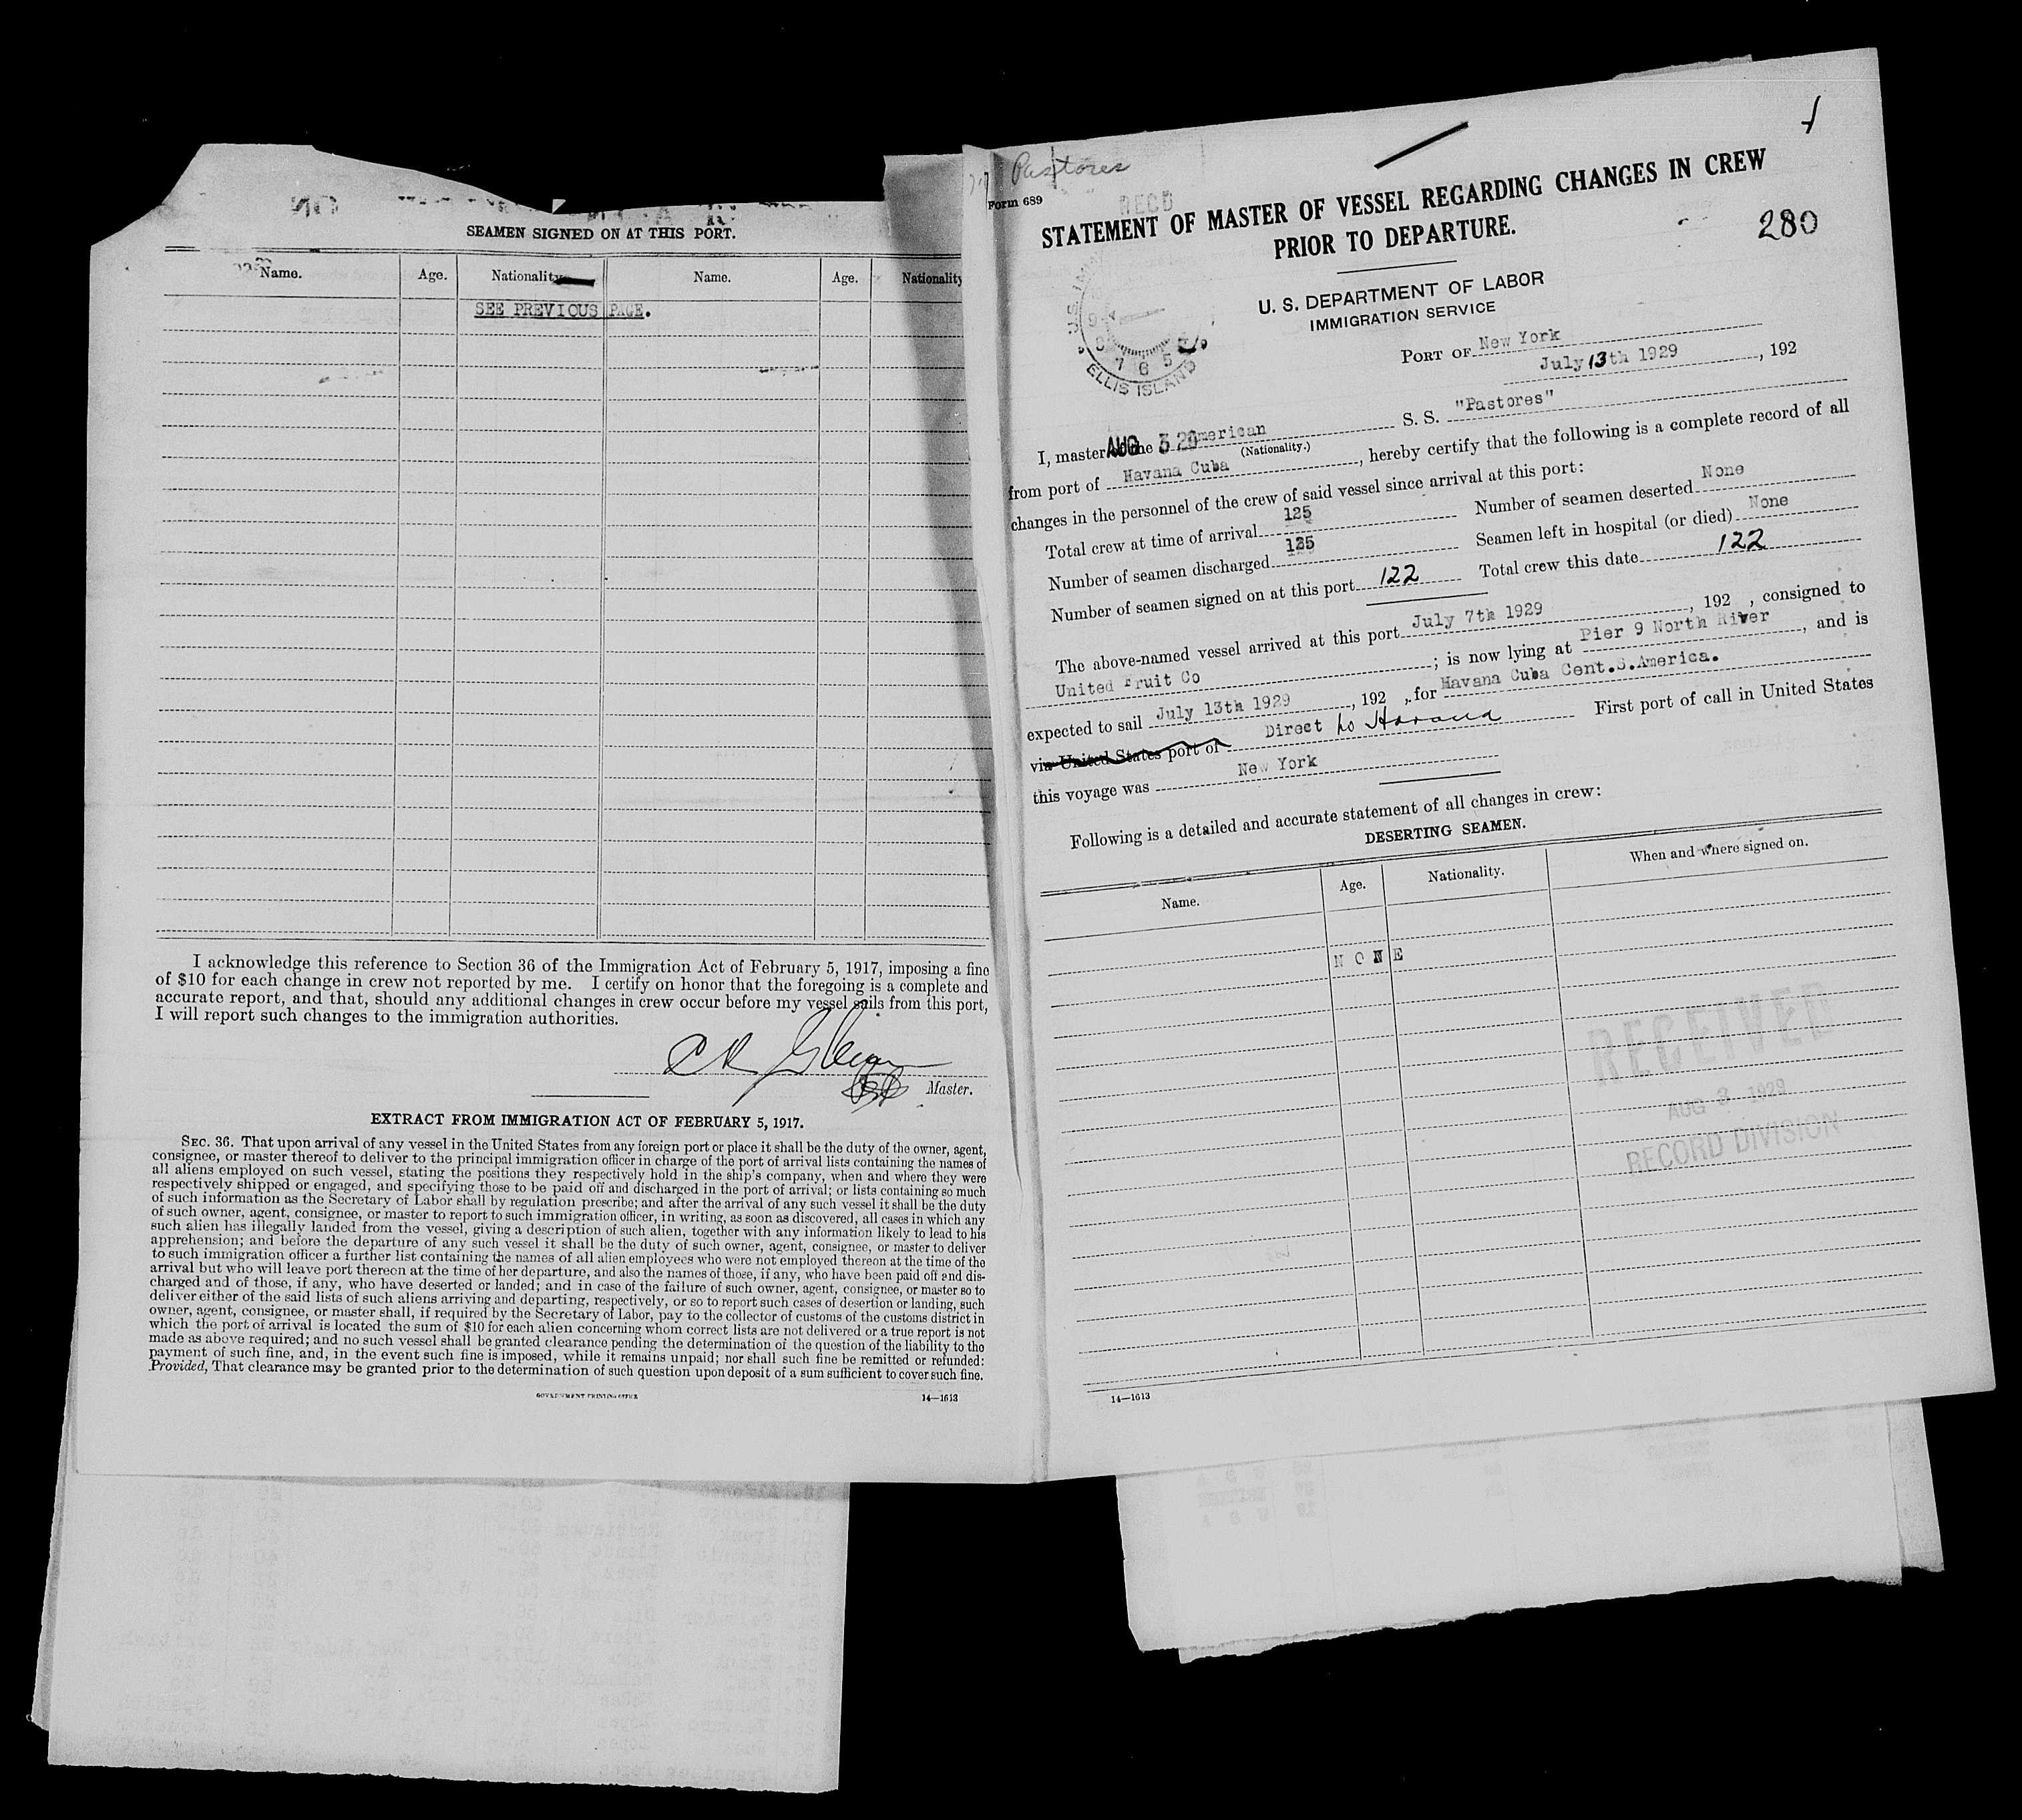 SEAMEN SIGNED ON AT THIS PORT.
Name. Age. Nationality Name. Age. Nationality
SEE PREVIOUS PAGE.
I acknowledge this reference to Section 36 of the Immigration Act of February 5, 1917, imposing a fine
of $10 for each change in crew not reported by me. I certify on honor that the foregoing is a complete and
accurate report, and that, should any additional changes in crew occur before my vessel sails from this port,
I will report such changes to the immigration authorities.
Master.
EXTRACT FROM IMMIGRATION ACT OF FEBRUARY 5, 1917.
SEC. 36. That upon arrival of any vessel in the United States from any foreign port or place it shall be the duty of the owner, agent,
consignee, or master thereof to deliver to the principal immigration officer in charge of the port of arrival lists containing the names of
all aliens employed on such vessel, stating the positions they respectively hold in the ship's company, when and where they were
respectively shipped or engaged, and specifying those to be paid off and discharged in the port of arrival; or lists containing so much
of such information as the Secretary of Labor shall by regulation prescribe; and after the arrival of any such vessel it shall be the duty
of such owner, agent, consignee, or master to report to such immigration officer, in writing, as soon as discovered, all cases in which any
such alien has illegally landed from the vessel, giving a description of such alien, together with any information likely to lead to his
apprehension; and before the departure of any such vessel it shall be the duty of such owner, agent, consignee, or master to deliver
to such immigration officer a further list containing the names of all alien employees who were not employed thereon at the time of the
arrival but who will leave port thereon at the time of her departure, and also the names of those, if any, who have been paid off and dis-
charged and of those, if any, who have deserted or landed; and in case of the failure of such owner, agent, consignee, or master so to
deliver either of the said lists of such aliens arriving and departing, respectively, or so to report such cases of desertion or landing, such
owner, agent, consignee, or master shall, if required by the Secretary of Labor, pay to the collector of customs of the customs district in
which the port of arrival is located the sum of $10 for each alien concerning whom correct lists are not delivered or a true report is not
made as above required; and no such vessel shall be granted clearance pending the determination of the question of the liability to the
payment of such fine, and, in the event such fine is imposed, while it remains unpaid; nor shall such fine be remitted or refunded:
Provided, That clearance may be granted prior to the determination of such question upon deposit of a sum sufficient to cover such fine.
GOVERNMENT PRINTING OFFICE 14—1613
Pastores
Form 689
REC'D
STATEMENT OF MASTER OF VESSEL REGARDING CHANGES IN CREW
PRIOR TO DEPARTURE.
280
U. S. DEPARTMENT OF LABOR
IMMIGRATION SERVICE
ELLIS ISLAND
PORT OF New York
July 13th 1929, 192
S. S. "Pastores"
I, master of the American
AUG 3 29
(Nationality.)
from port of Havana Cuba, hereby certify that the following is a complete record of all
changes in the personnel of the crew of said vessel since arrival at this port:
Total crew at time of arrival 125 Number of seamen deserted None
Number of seamen discharged 125 Seamen left in hospital (or died) None
Number of seamen signed on at this port 122 Total crew this date 122
The above-named vessel arrived at this port July 7th 1929, 192 , consigned to
United Fruit Co ; is now lying at Pier 9 North River, and is
expected to sail July 13th 1929, 192 , for Havana Cuba Cent.S.America.
via United States port of Direct to Havana First port of call in United States
this voyage was New York
Following is a detailed and accurate statement of all changes in crew:
DESERTING SEAMEN.
Name. Age. Nationality. When and where signed on.
N O N E
RECEIVED
AUG 3 1929
RECORD DIVISION
14—1613